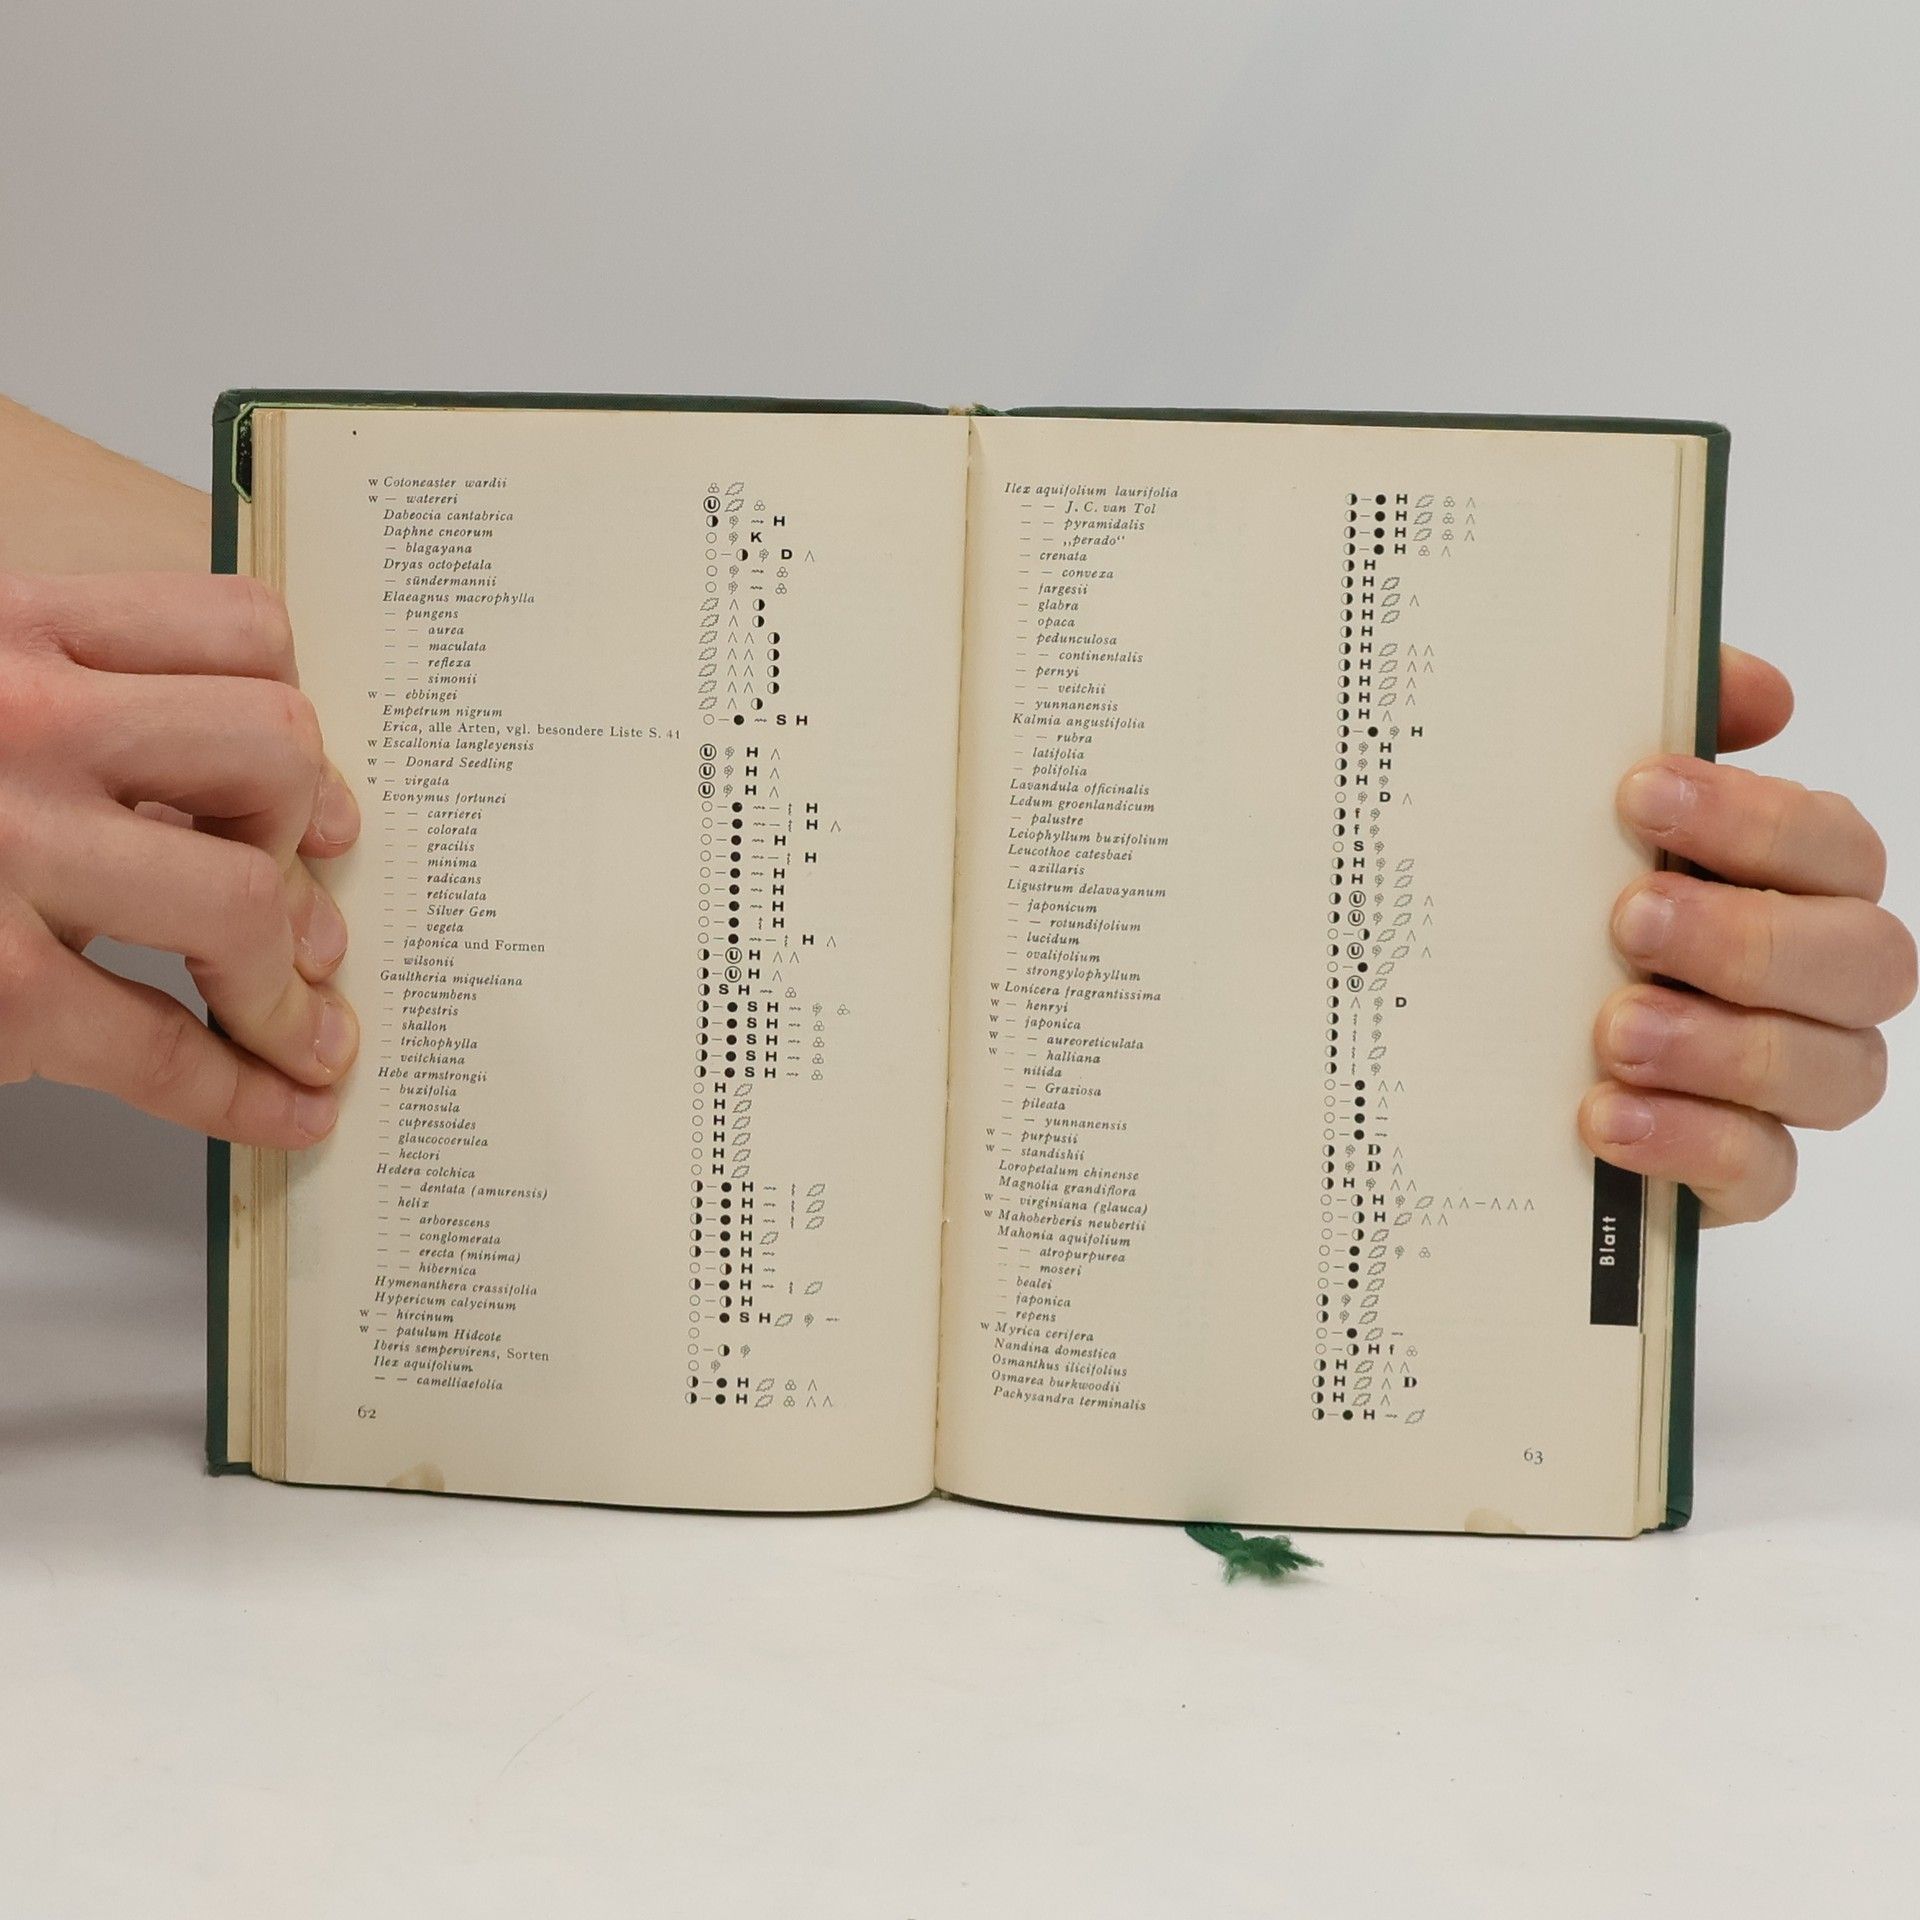 w Cotoneaster wardii
w — watereri Ⓤ
Dabeocia cantabrica ◑ H
Daphne cneorum ○ K
— blagayana ○–◑ D ∧
Dryas octopetala ○
— sündermannii ○
Elaeagnus macrophylla ∧ ◑
— pungens ∧ ◑
— — aurea ∧∧ ◑
— — maculata ∧∧ ◑
— — reflexa ∧∧ ◑
— — simonii ∧∧ ◑
w — ebbingei ∧ ◑
Empetrum nigrum ○–● S H
Erica, alle Arten, vgl. besondere Liste S. 41
w Escallonia langleyensis Ⓤ H ∧
w — Donard Seedling Ⓤ H ∧
w — virgata Ⓤ H ∧
Evonymus fortunei ○–● H
— — carrierei ○–● H ∧
— — colorata ○–● H
— — gracilis ○–● H
— — minima ○–● H
— — radicans ○–● H
— — reticulata ○–● H
— — Silver Gem ○–● H
— — vegeta ○–● H ∧
— japonica und Formen ◑–Ⓤ H ∧∧
— wilsonii ◑–Ⓤ H ∧
Gaultheria miqueliana ◑ S H
— procumbens ◑–● S H
— rupestris ◑–● S H
— shallon ◑–● S H
— trichophylla ◑–● S H
— veitchiana ◑–● S H
Hebe armstrongii ○ H
— buxifolia ○ H
— carnosula ○ H
— cupressoides ○ H
— glaucocoerulea ○ H
— hectori ○ H
Hedera colchica ◑–● H
— — dentata (amurensis) ◑–● H
— helix ◑–● H
— — arborescens ◑–● H
— — conglomerata ◑–● H
— — erecta (minima) ○–◑ H
— — hibernica ◑–● H
Hymenanthera crassifolia ○–◑ H
Hypericum calycinum ○–● S H
w — hircinum ○
w — patulum Hidcote ○–◑
Iberis sempervirens, Sorten ○
Ilex aquifolium ◑–● H ∧
— — camelliaefolia ◑–● H ∧∧
62
Ilex aquifolium laurifolia ◑–● H ∧
— — J. C. van Tol ◑–● H ∧
— — pyramidalis ◑–● H ∧
— — „perado“ ◑–● H ∧
— crenata ◑ H
— — convexa ◑ H
— fargesii ◑ H ∧
— glabra ◑ H
— opaca ◑ H
— pedunculosa ◑ H ∧∧
— — continentalis ◑ H ∧∧
— pernyi ◑ H ∧
— — veitchii ◑ H ∧
— yunnanensis ◑ H ∧
Kalmia angustifolia ◑–● H
— — rubra ◑ H
— latifolia ◑ H
— polifolia ◑ H
Lavandula officinalis ○ D ∧
Ledum groenlandicum ◑ f
— palustre ◑ f
Leiophyllum buxifolium ○ S
Leucothoe catesbaei ◑ H
— axillaris ◑ H
Ligustrum delavayanum ◑ Ⓤ ∧
— japonicum ◑ Ⓤ ∧
— — rotundifolium ○–◑ ∧
— lucidum ◑ Ⓤ ∧
— ovalifolium ○–●
— strongylophyllum ◑ Ⓤ
w Lonicera fragrantissima ◑ ∧ D
w — henryi ◑
w — japonica ◑
w — — aureoreticulata ◑
w — — halliana ◑
— nitida ○–● ∧∧
— — Graziosa ○–● ∧
— pileata ○–●
— — yunnanensis ○–●
w — purpusii ◑ D ∧
w — standishii ◑ D ∧
Loropetalum chinense ◑ H ∧∧
Magnolia grandiflora ○–◑ H ∧∧–∧∧∧
w — virginiana (glauca) ○–◑ H ∧∧
w Mahoberberis neubertii ○–◑
Mahonia aquifolium ○–●
— — atropurpurea ○–●
— — moseri ○–●
— bealei ◑
— japonica ◑
— repens ○–●
w Myrica cerifera ○–◑ H f
Nandina domestica ◑ H ∧∧
Osmanthus ilicifolius ◑ H ∧ D
Osmarea burkwoodii ◑ H ∧
Pachysandra terminalis ◑–● H
63
Blatt